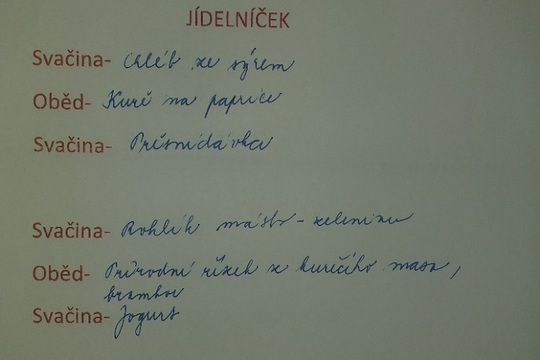 JÍDELNÍČEK
Svačina- chléb ze sýrem
Oběd- Kuře na paprice
Svačina- Přesnídávka
Svačina- Rohlík máslo - zelenina
Oběd- Přírodní řízek z kuřecího masa,
brambor
Svačina- Jogurt